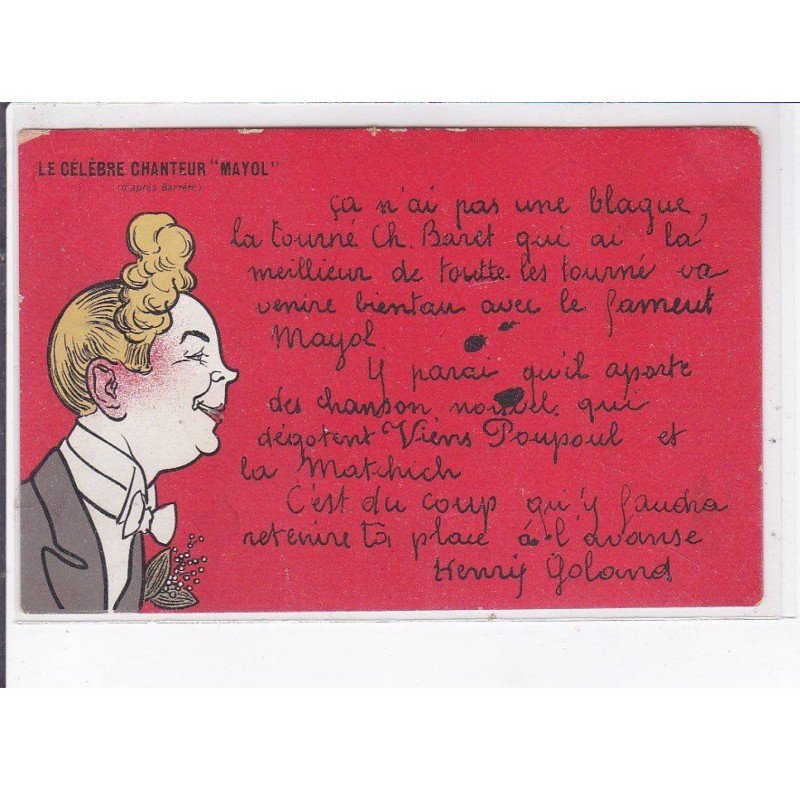 LE CÉLÈBRE CHANTEUR "MAYOL"
(d'après Barrère)
ça n'ai pas une blague,
la tourné Ch. Baret qui ai la
meillieur de toutte les tourné va
venire bientau avec le fameut
Mayol.
Y parai qu'il aporte
des chanson nouvel qui
dégotent Viens Poupoul et
la Matchich
C'est du coup qu'y faudra
retenire ta place à l'avanse
Henry Goland